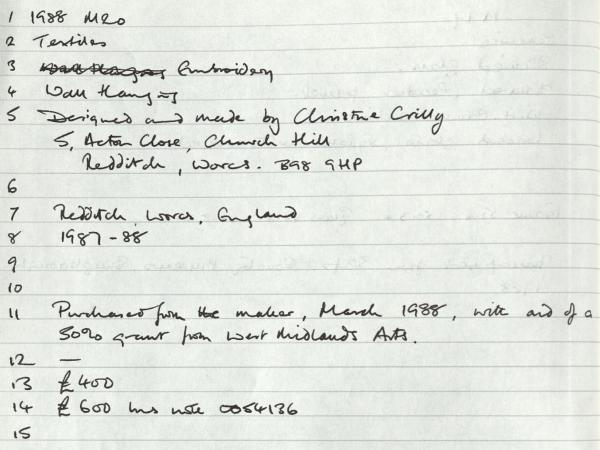 1 1988 M20
2 Textiles
3 Wall Hangings Embroidery
4 Wall Hanging
5 Designed and made by Christine Crilly
5, Acton Close, Church Hill
Redditch, Worcs. B98 9HP
6
7 Redditch, Worcs, England
8 1987-88
9
10
11 Purchased from the maker, March 1988, with aid of a
50% grant from West Midlands Arts.
12 —
13 £400
14 £600 Ins note 0054136
15